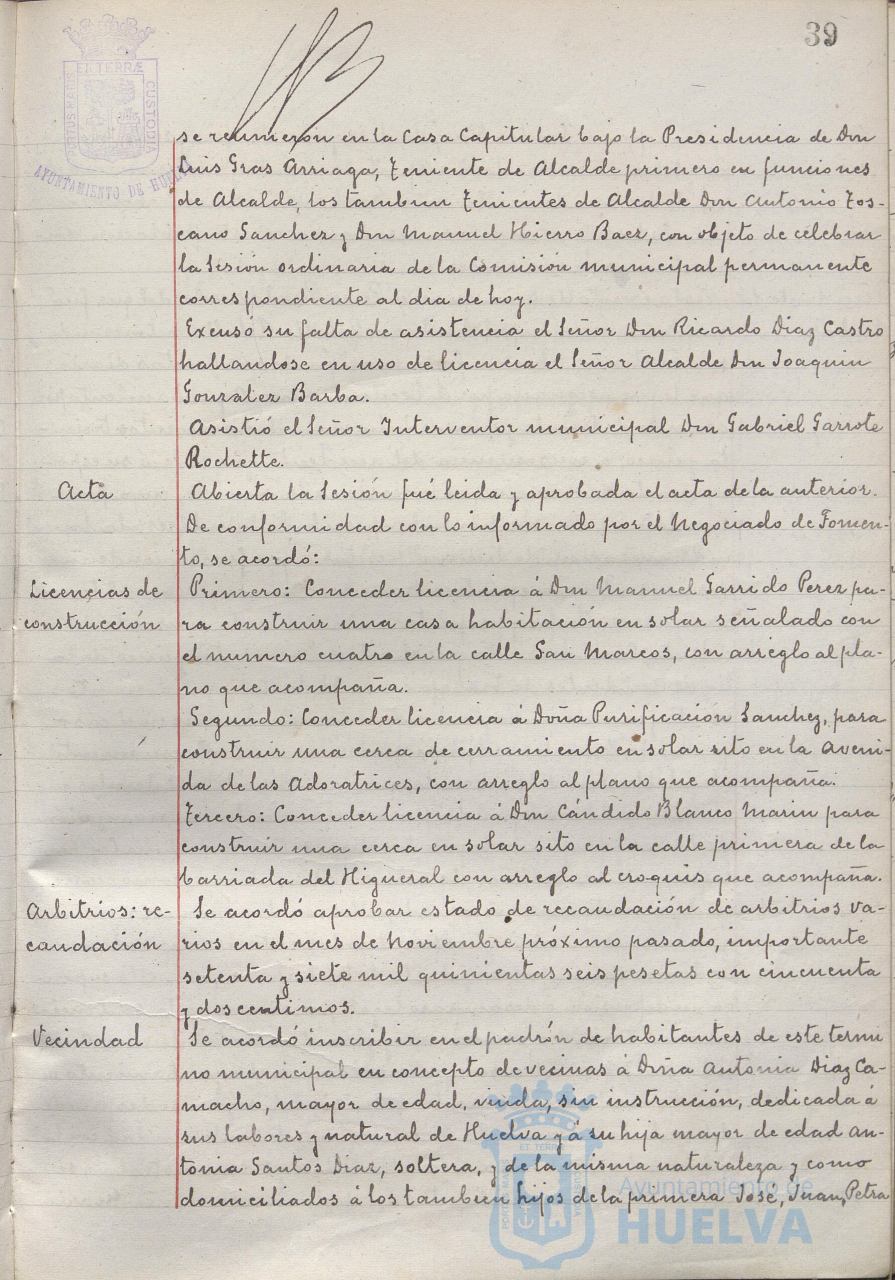 39
EN TERRÆ
PORTUS MARIS
CUSTODIA
AYUNTAMIENTO DE HUELVA
se reunieron en la Casa Capitular bajo la Presidencia de Don
Luis Gras Arriaga, Teniente de Alcalde primero en funciones
de Alcalde, los tambien Tenientes de Alcalde Don Antonio Tos-
cano Sanchez y Don Manuel Hierro Baez, con objeto de celebrar
la Sesión ordinaria de la Comisión municipal permanente
correspondiente al dia de hoy.
Excusó su falta de asistencia el Señor Don Ricardo Diaz Castro
hallandose en uso de licencia el Señor Alcalde Don Joaquin
Gonzalez Barba.
Asistió el Señor Interventor municipal Don Gabriel Garrote
Rochette.
Acta
Abierta la Sesión fué leida y aprobada el acta de la anterior.
De conformidad con lo informado por el Negociado de Fomen-
to, se acordó:
Licencias de
construcción
Primero: Conceder licencia á Don Manuel Garrido Perez pa-
ra construir una casa habitación en solar señalado con
el numero cuatro en la calle San Marcos, con arreglo al pla-
no que acompaña.
Segundo: Conceder licencia á Doña Purificación Sanchez, para
construir una cerca de cerramiento en solar sito en la Aveni-
da de las Adoratrices, con arreglo al plano que acompaña.
Tercero: Conceder licencia á Don Cándido Blanco Marin para
construir una cerca en solar sito en la calle primera de la
barriada del Higueral con arreglo al croquis que acompaña.
Arbitrios: re-
caudación
Se acordó aprobar estado de recaudación de arbitrios va-
rios en el mes de Noviembre próximo pasado, importante
setenta y siete mil quinientas seis pesetas con cincuenta
y dos centimos.
Vecindad
Se acordó inscribir en el padrón de habitantes de este termi
no municipal en concepto de vecinas á Doña Antonia Diaz Ca-
macho, mayor de edad, viuda, sin instrucción, dedicada á
sus labores y natural de Huelva y á su hija mayor de edad An-
tonia Santos Diaz, soltera, y de la misma naturaleza y como
domiciliados á los tambien hijos de la primera José, Juan, Petra
Ayuntamiento de
HUELVA